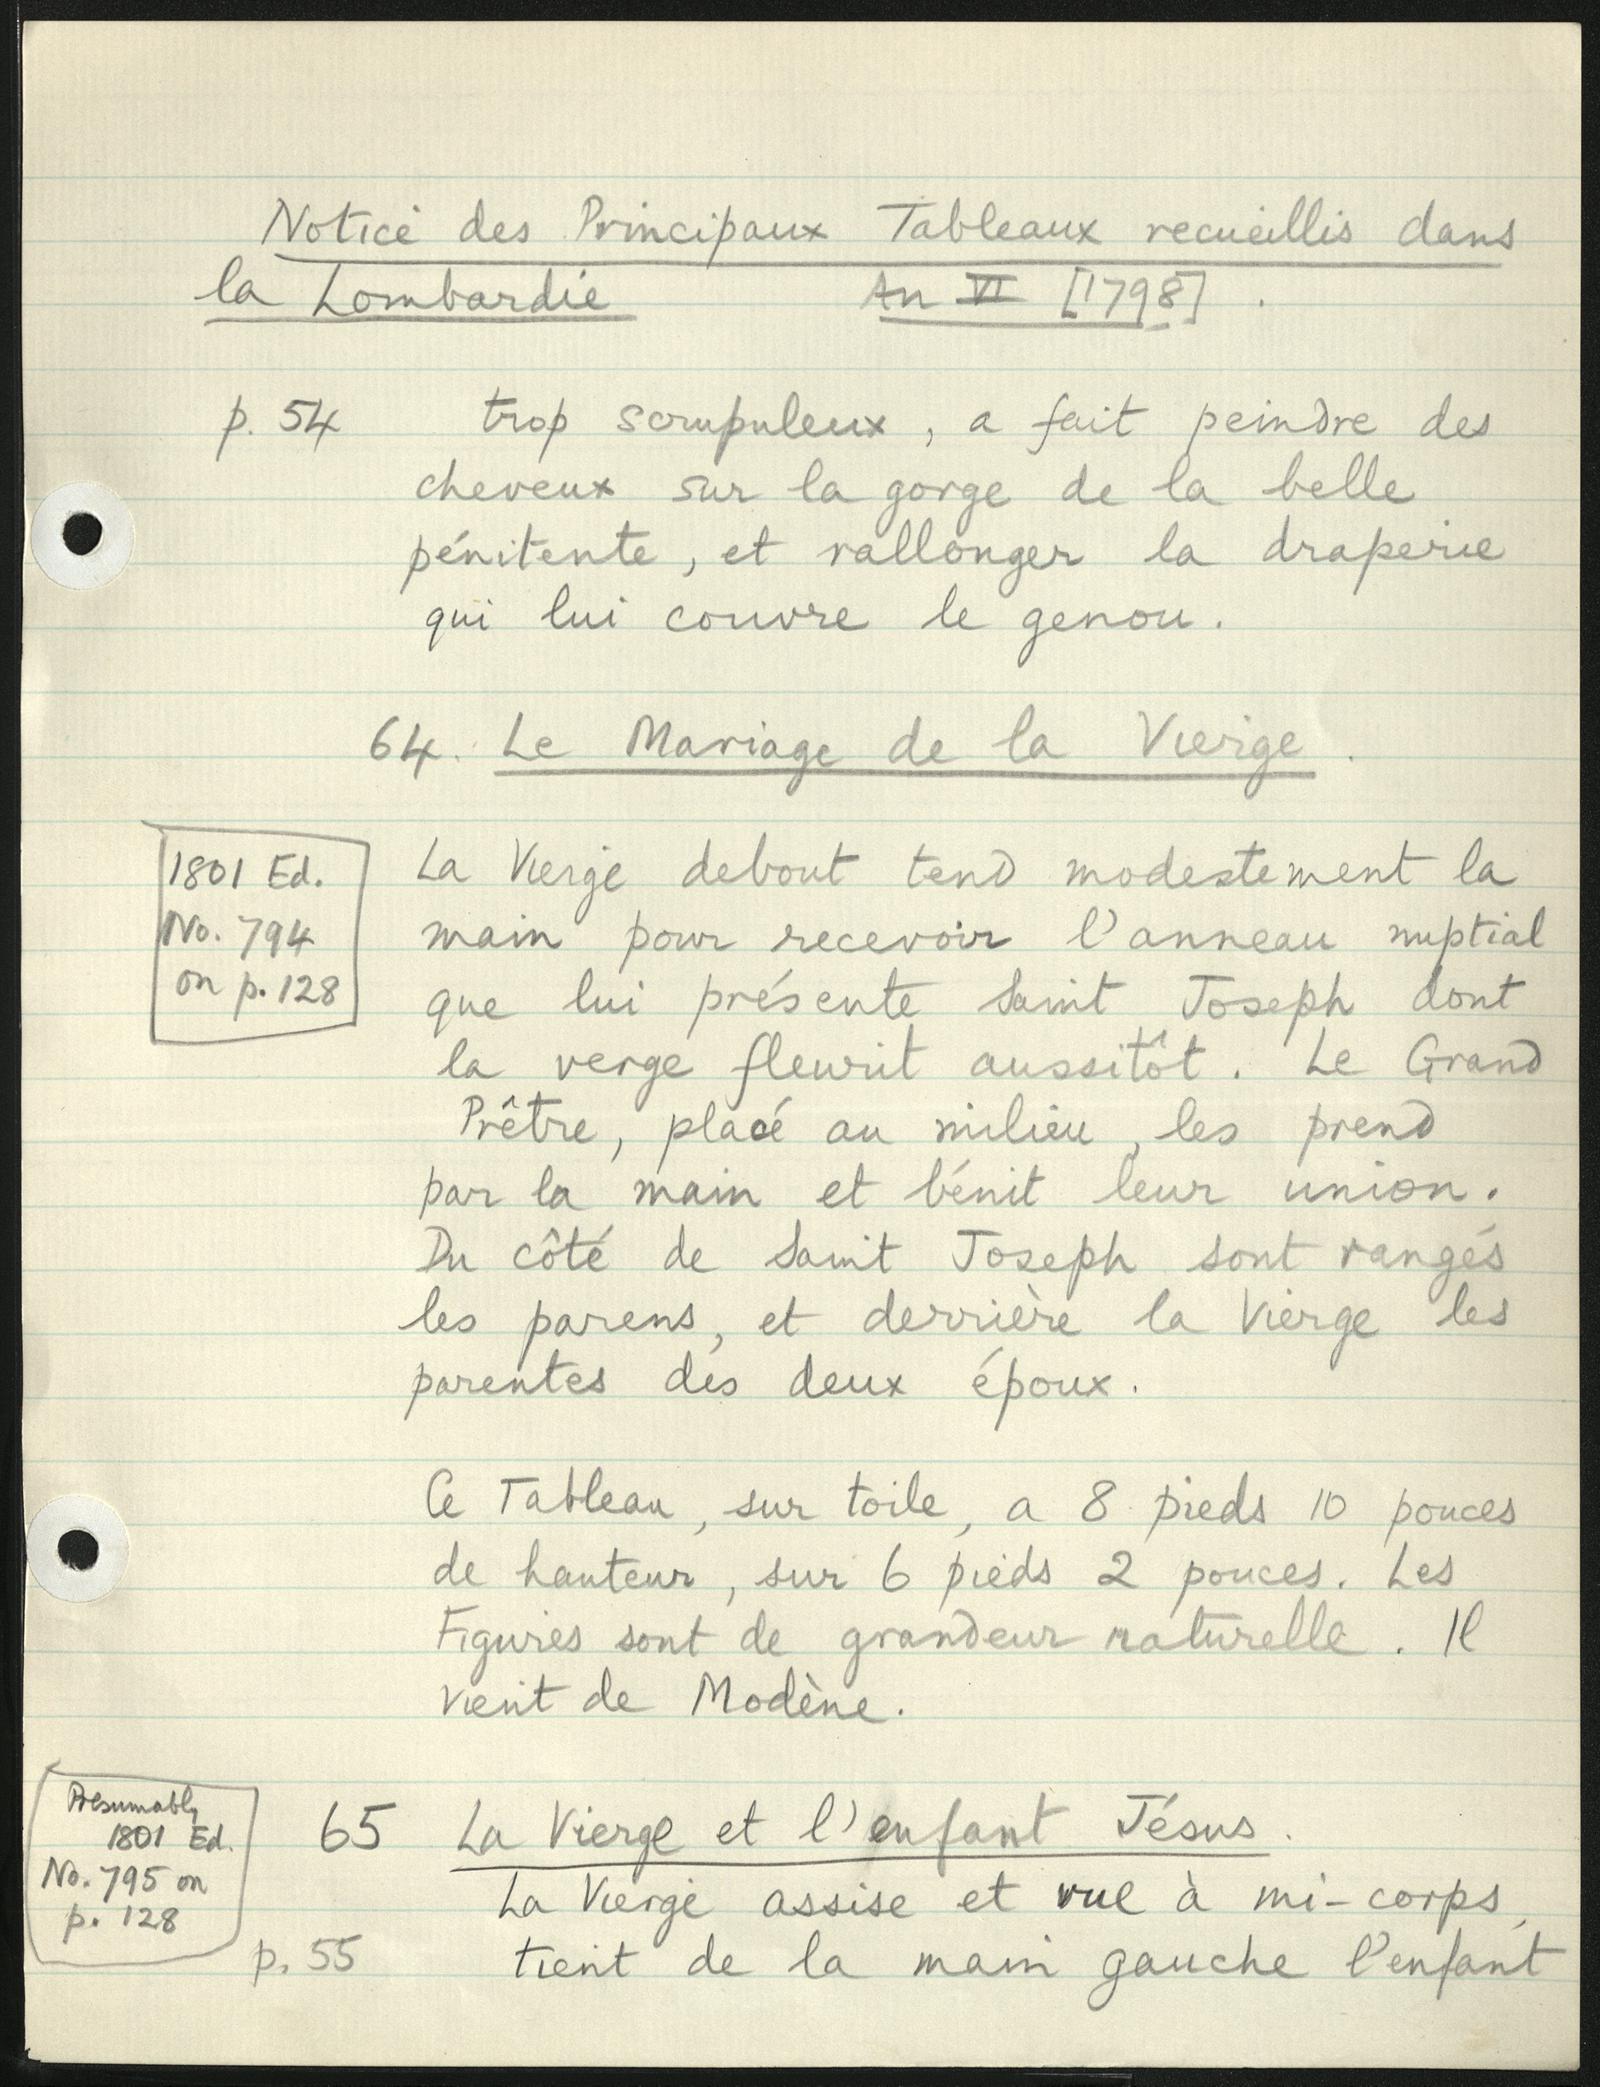 Notice des Principaux Tableaux recueillis dans
la Lombardie An VI [1798].
p. 54 trop scrupuleux, a fait peindre des
cheveux sur la gorge de la belle
pénitente, et rallonger la draperie
qui lui couvre le genou.
64. Le Mariage de la Vierge.
1801 Ed.
No. 794
on p. 128
La Vierge debout tend modestement la
main pour recevoir l'anneau nuptial
que lui présente Saint Joseph dont
la verge fleurit aussitôt. Le Grand
Prêtre, placé au milieu, les prend
par la main et bénit leur union.
Du côté de Saint Joseph sont rangés
les parens, et derrière la Vierge les
parentes des deux époux.
Ce Tableau, sur toile, a 8 pieds 10 pouces
de hauteur, sur 6 pieds 2 pouces. Les
Figures sont de grandeur naturelle. Il
vient de Modène.
Presumably
1801 Ed.
No. 795 on
p. 128
65 La Vierge et l'enfant Jésus.
La Vierge assise et vue à mi-corps,
p. 55 tient de la main gauche l'enfant